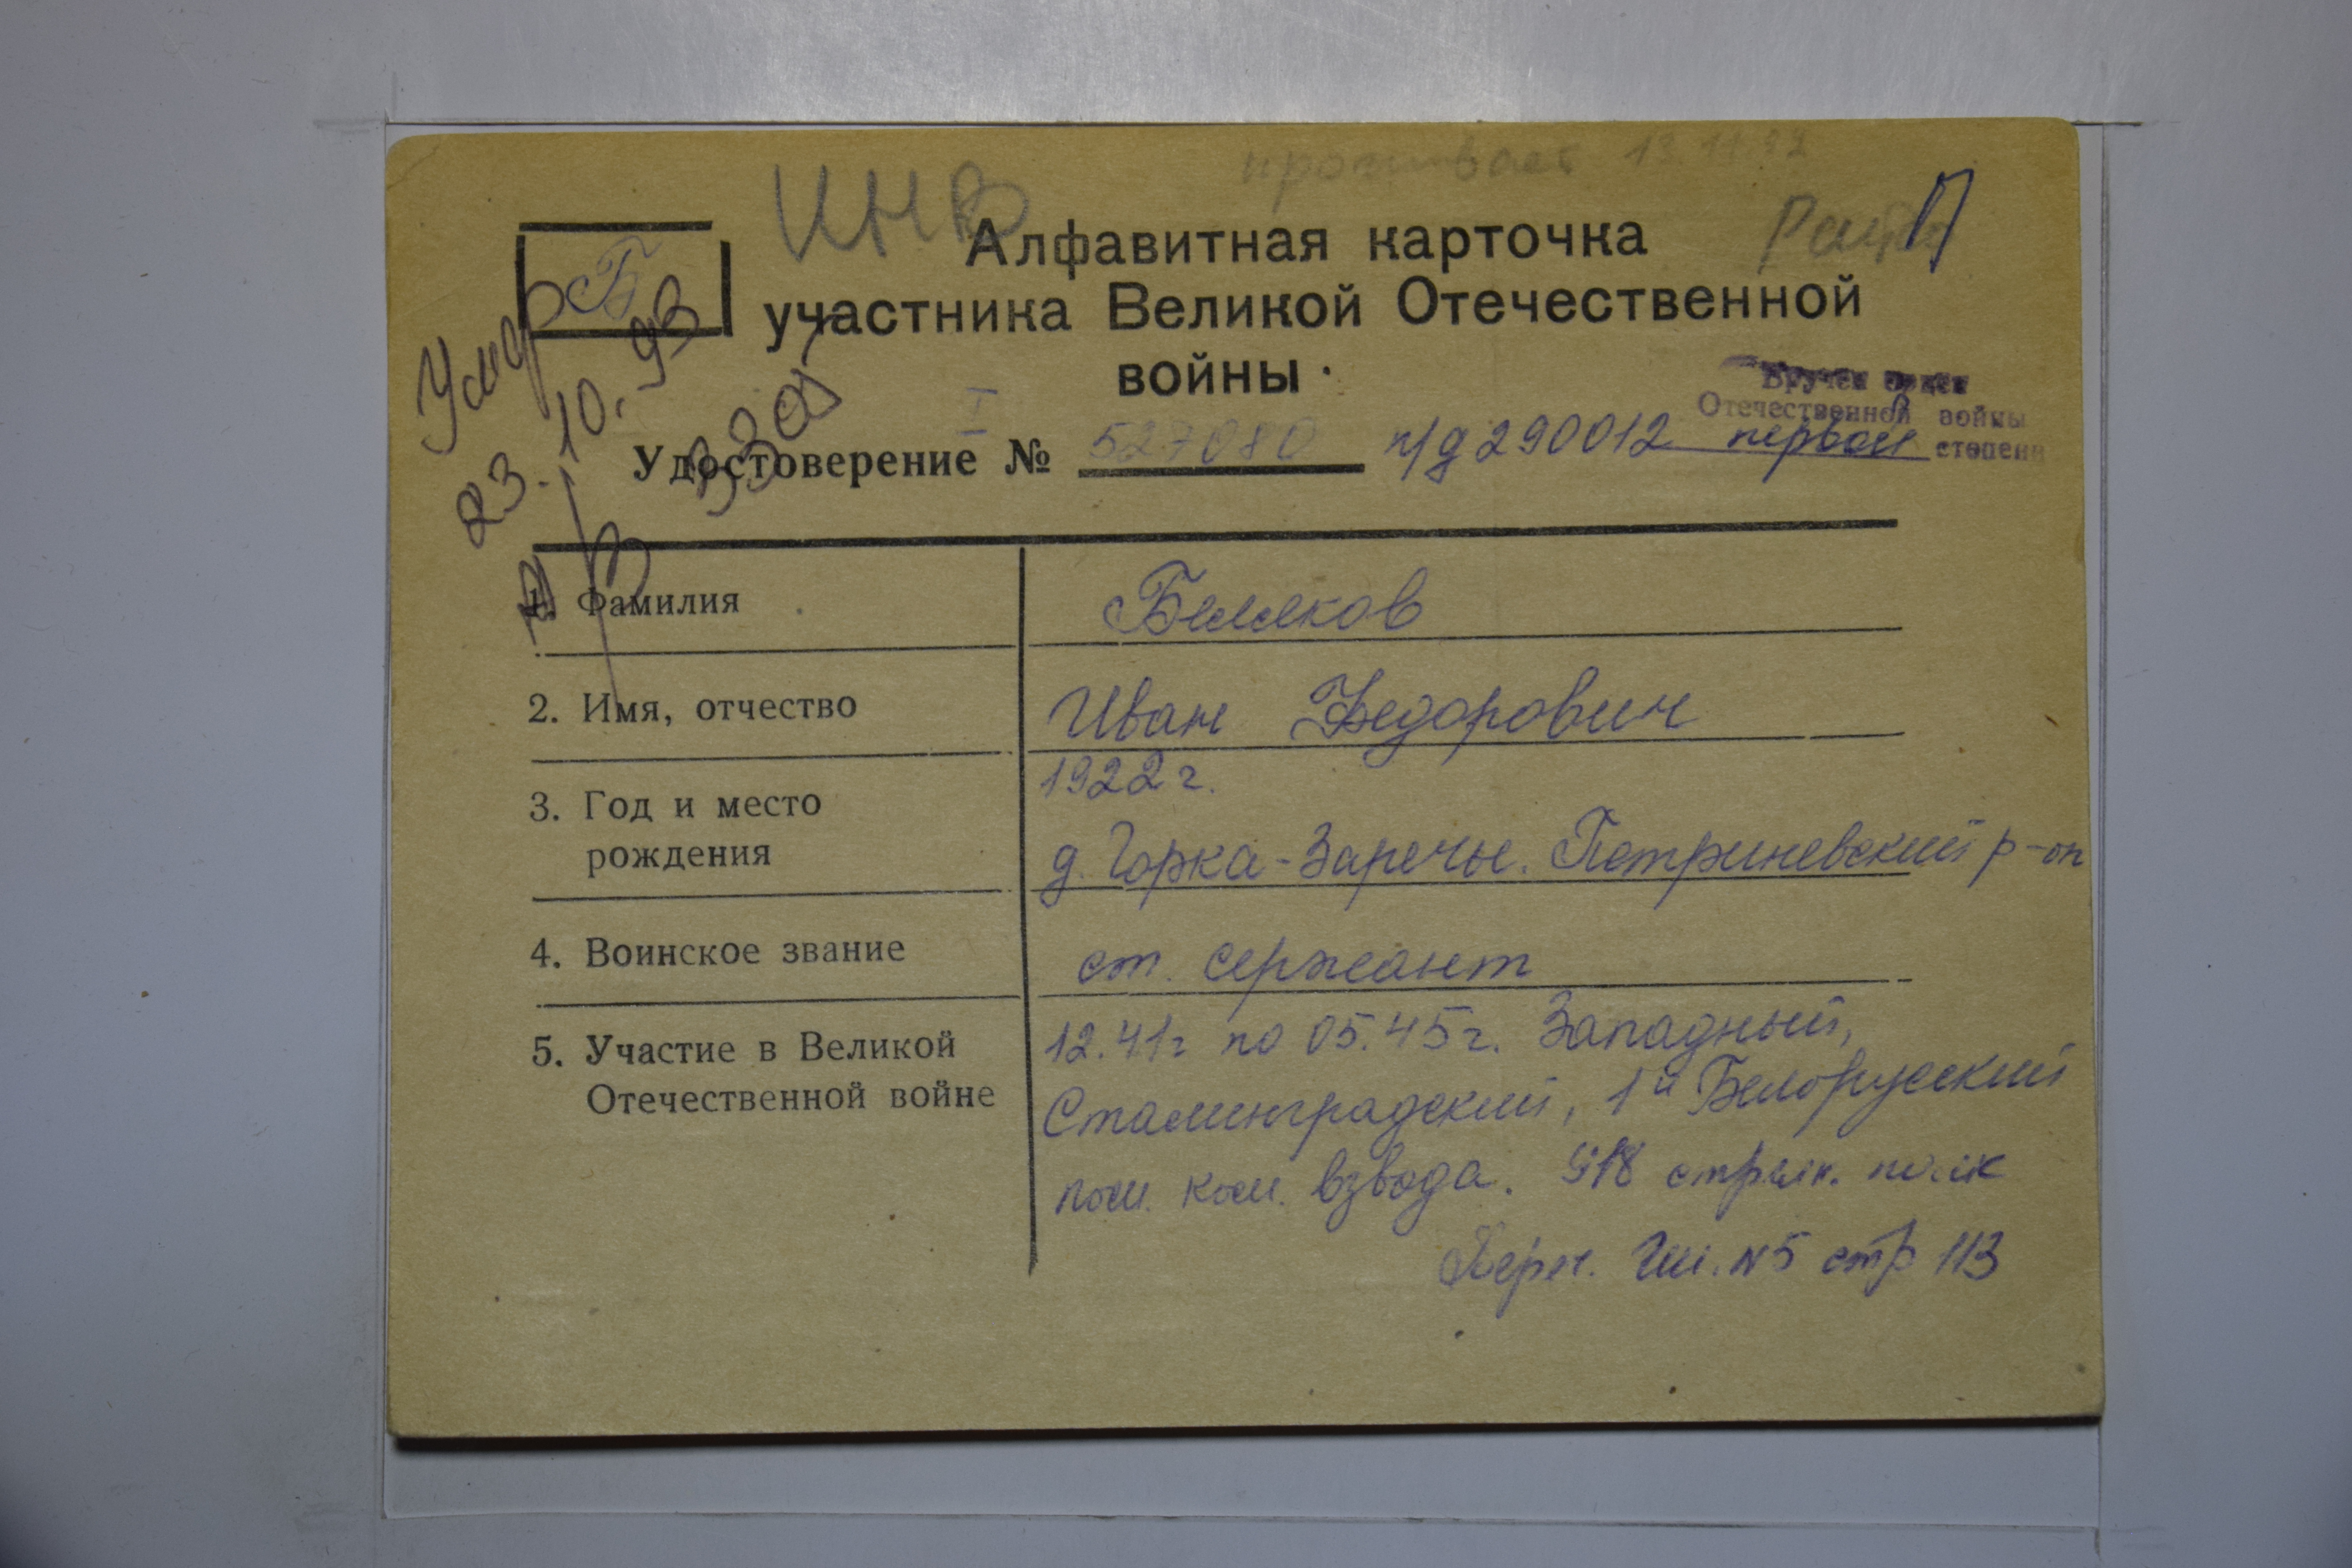 проживает 13.11.92
ИНВ
Б
Алфавитная карточка
участника Великой Отечественной
войны
Умер
23.10.93
ЗЗОТ
Вручен орден
Отечественной войны
первой степени
I
Удостоверение № 527080 п/д 290012
1. Фамилия Беляков
2. Имя, отчество Иван Федорович
3. Год и место рождения 1922 г.
д. Горка-Заречье. Петриневский р-он
4. Воинское звание ст. сержант
5. Участие в Великой Отечественной войне 12.41г по 05.45г. Западный,
Сталинградский, 1й Белорусский
пом. ком. взвода. 918 стрелк. полк
Переч. ГШ. N5 стр 113